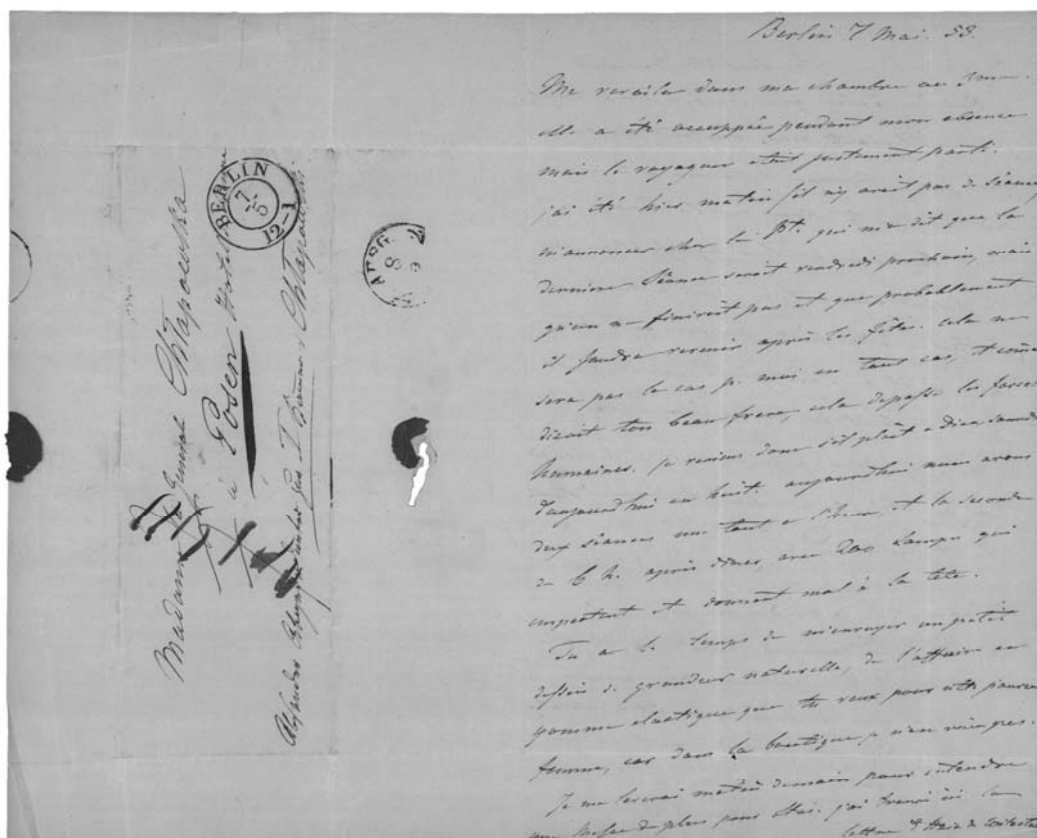 Berlin 7 Mai. 53.
Me revoila dans ma chambre au 3me.
elle a été occuppée pendant mon absence
mais le voyageur etait justement parti.
j'ai été hier matin (il n'y avait pas de séance)
m'annoncer chez le Pt. qui m'a dit que la
derniere séance serait vendredi prochain, mais
qu'on ne finirait pas et que probablement
il faudra revenir après les fêtes. cela ne
sera pas le cas p. moi en tout cas, et come
disait ton beau frere, cela depasse les forces
humaines. je reviens donc s'il plait a dieu samedi
d'aujourd'hui en huit. aujourd'hui nous avons
deux séances une tout a l'heure, et la seconde
de 6 h. après diner, avec 200 Lampes qui
empestent et donnent mal à la tete.
Tu a le temps de m'envoyer un petit
dessin de grandeur naturelle, de l'affaire en
gomme elastique que tu veux pour cette pauvre
femme, car dans la boutique je n'en vois pas.
Je me leverai matin demain pour entendre
une Messe de plus pour Stas. j'ai trouvé ici la
lettre
Madame
Chłapowska
à Posen Hotel
BERLIN
7/5
12-1
8
5